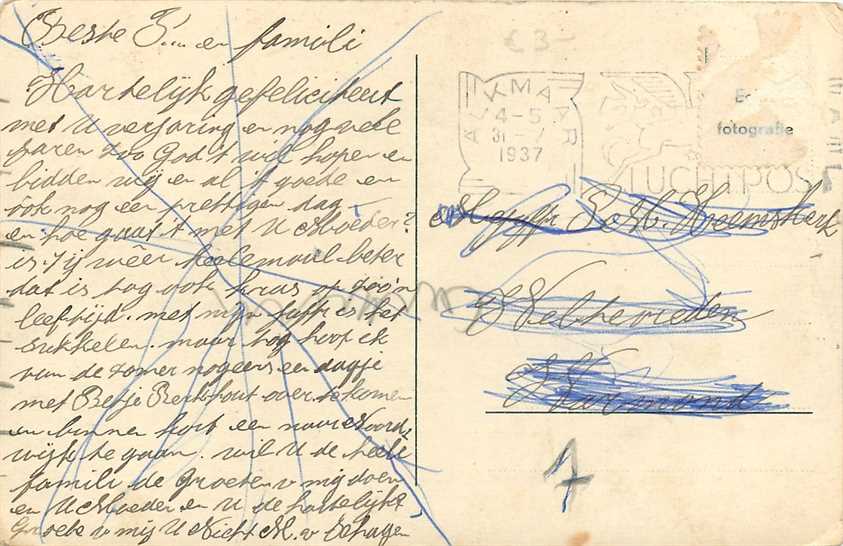 Beste T... en famili
Hartelijk gefeliciteert
met U verjaring en nog vele
jaren zoo God 't wil hopen en
bidden wij en al 't goede en
ook nog een prettigen dag
en hoe gaat 't met U Moeder?
is zij wêer heelemaal beter
dat is tog ook kras op zoo'n
leeftijd. met mijn is het
sukkelen. maar tog hoop ik
van de zomer nog eens een dagje
met Betje Berkhout over te komen
en binnen kort een naar Noord
wijk te gaan. wil U de heele
famili de Groeten v mij doen
en U Moeder en U de hartelijkst
Groete v mij U Nicht M. v Schagen
€ 3-
ALKMAAR
4-5
31 - 7
1937
LUCHTPOS
fotografie
Mejuffr Heemskerk
Weltevreden
Warmond
7